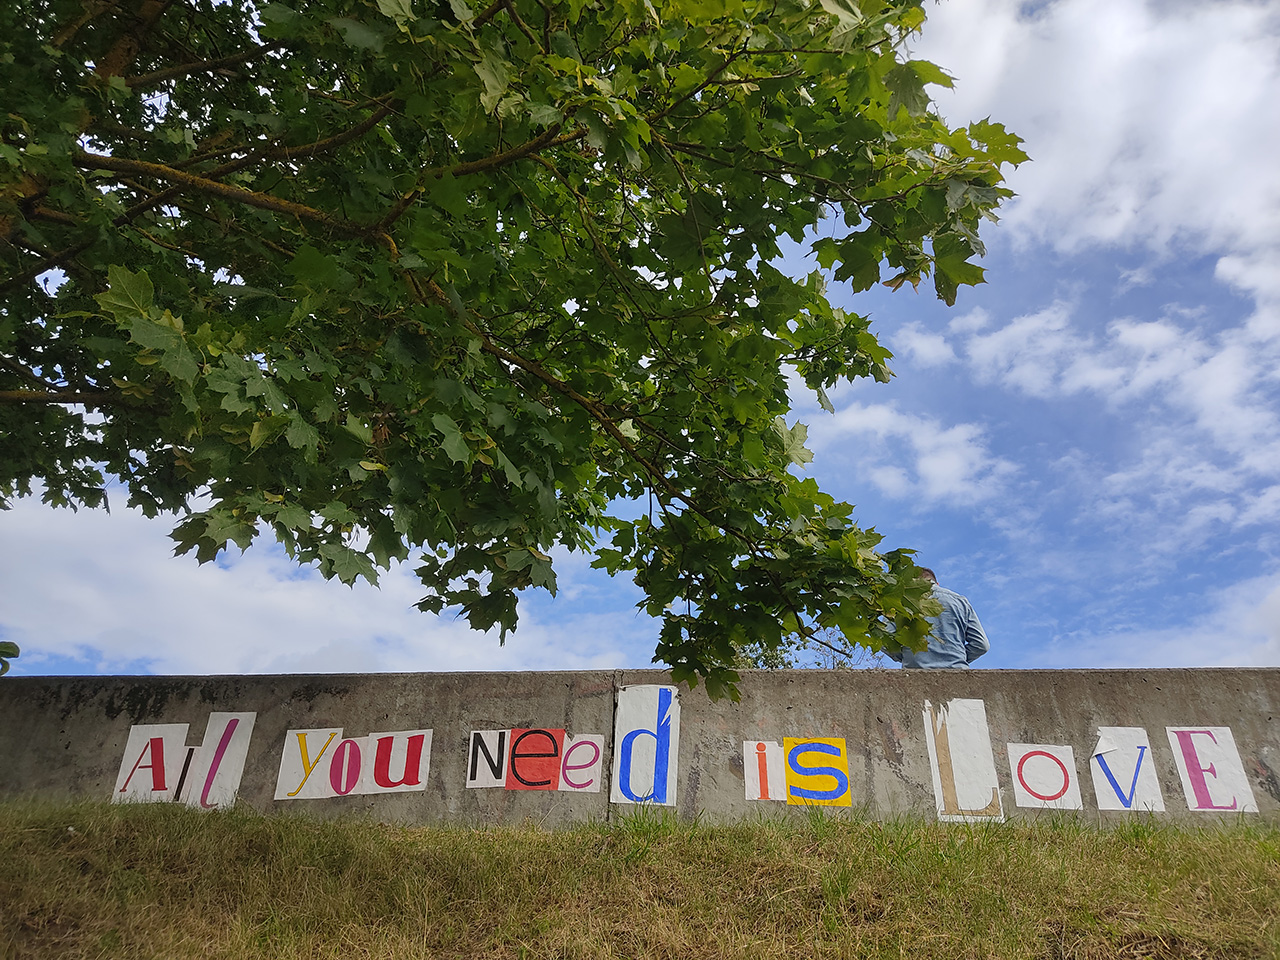 All you Need is LovE